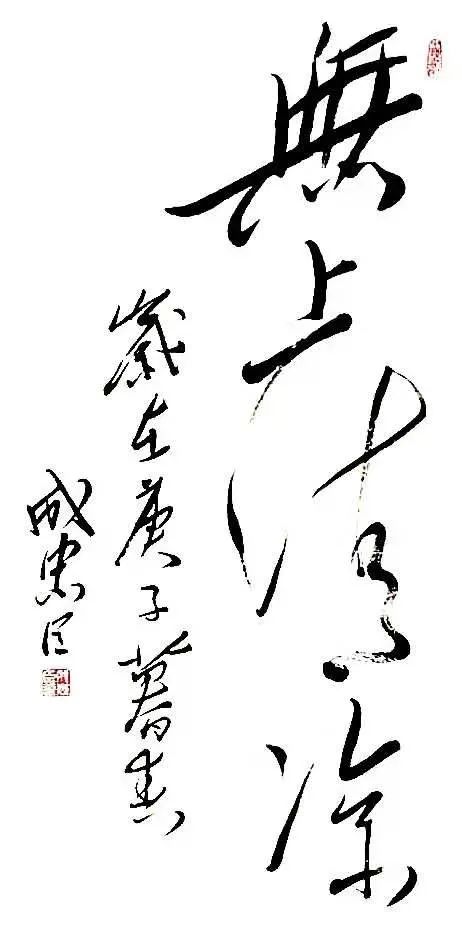 無上清凉
歲在庚子暮春
成忠臣